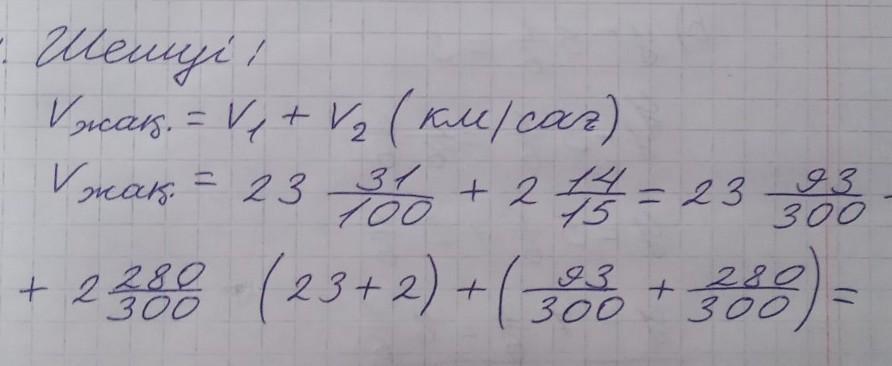 Шешуі!
Vжақ. = V₁ + V₂ (км/сағ)
Vжақ. = 23 31/100 + 2 14/15 = 23 93/300 +
+ 2 280/300 (23+2) + (93/300 + 280/300) =